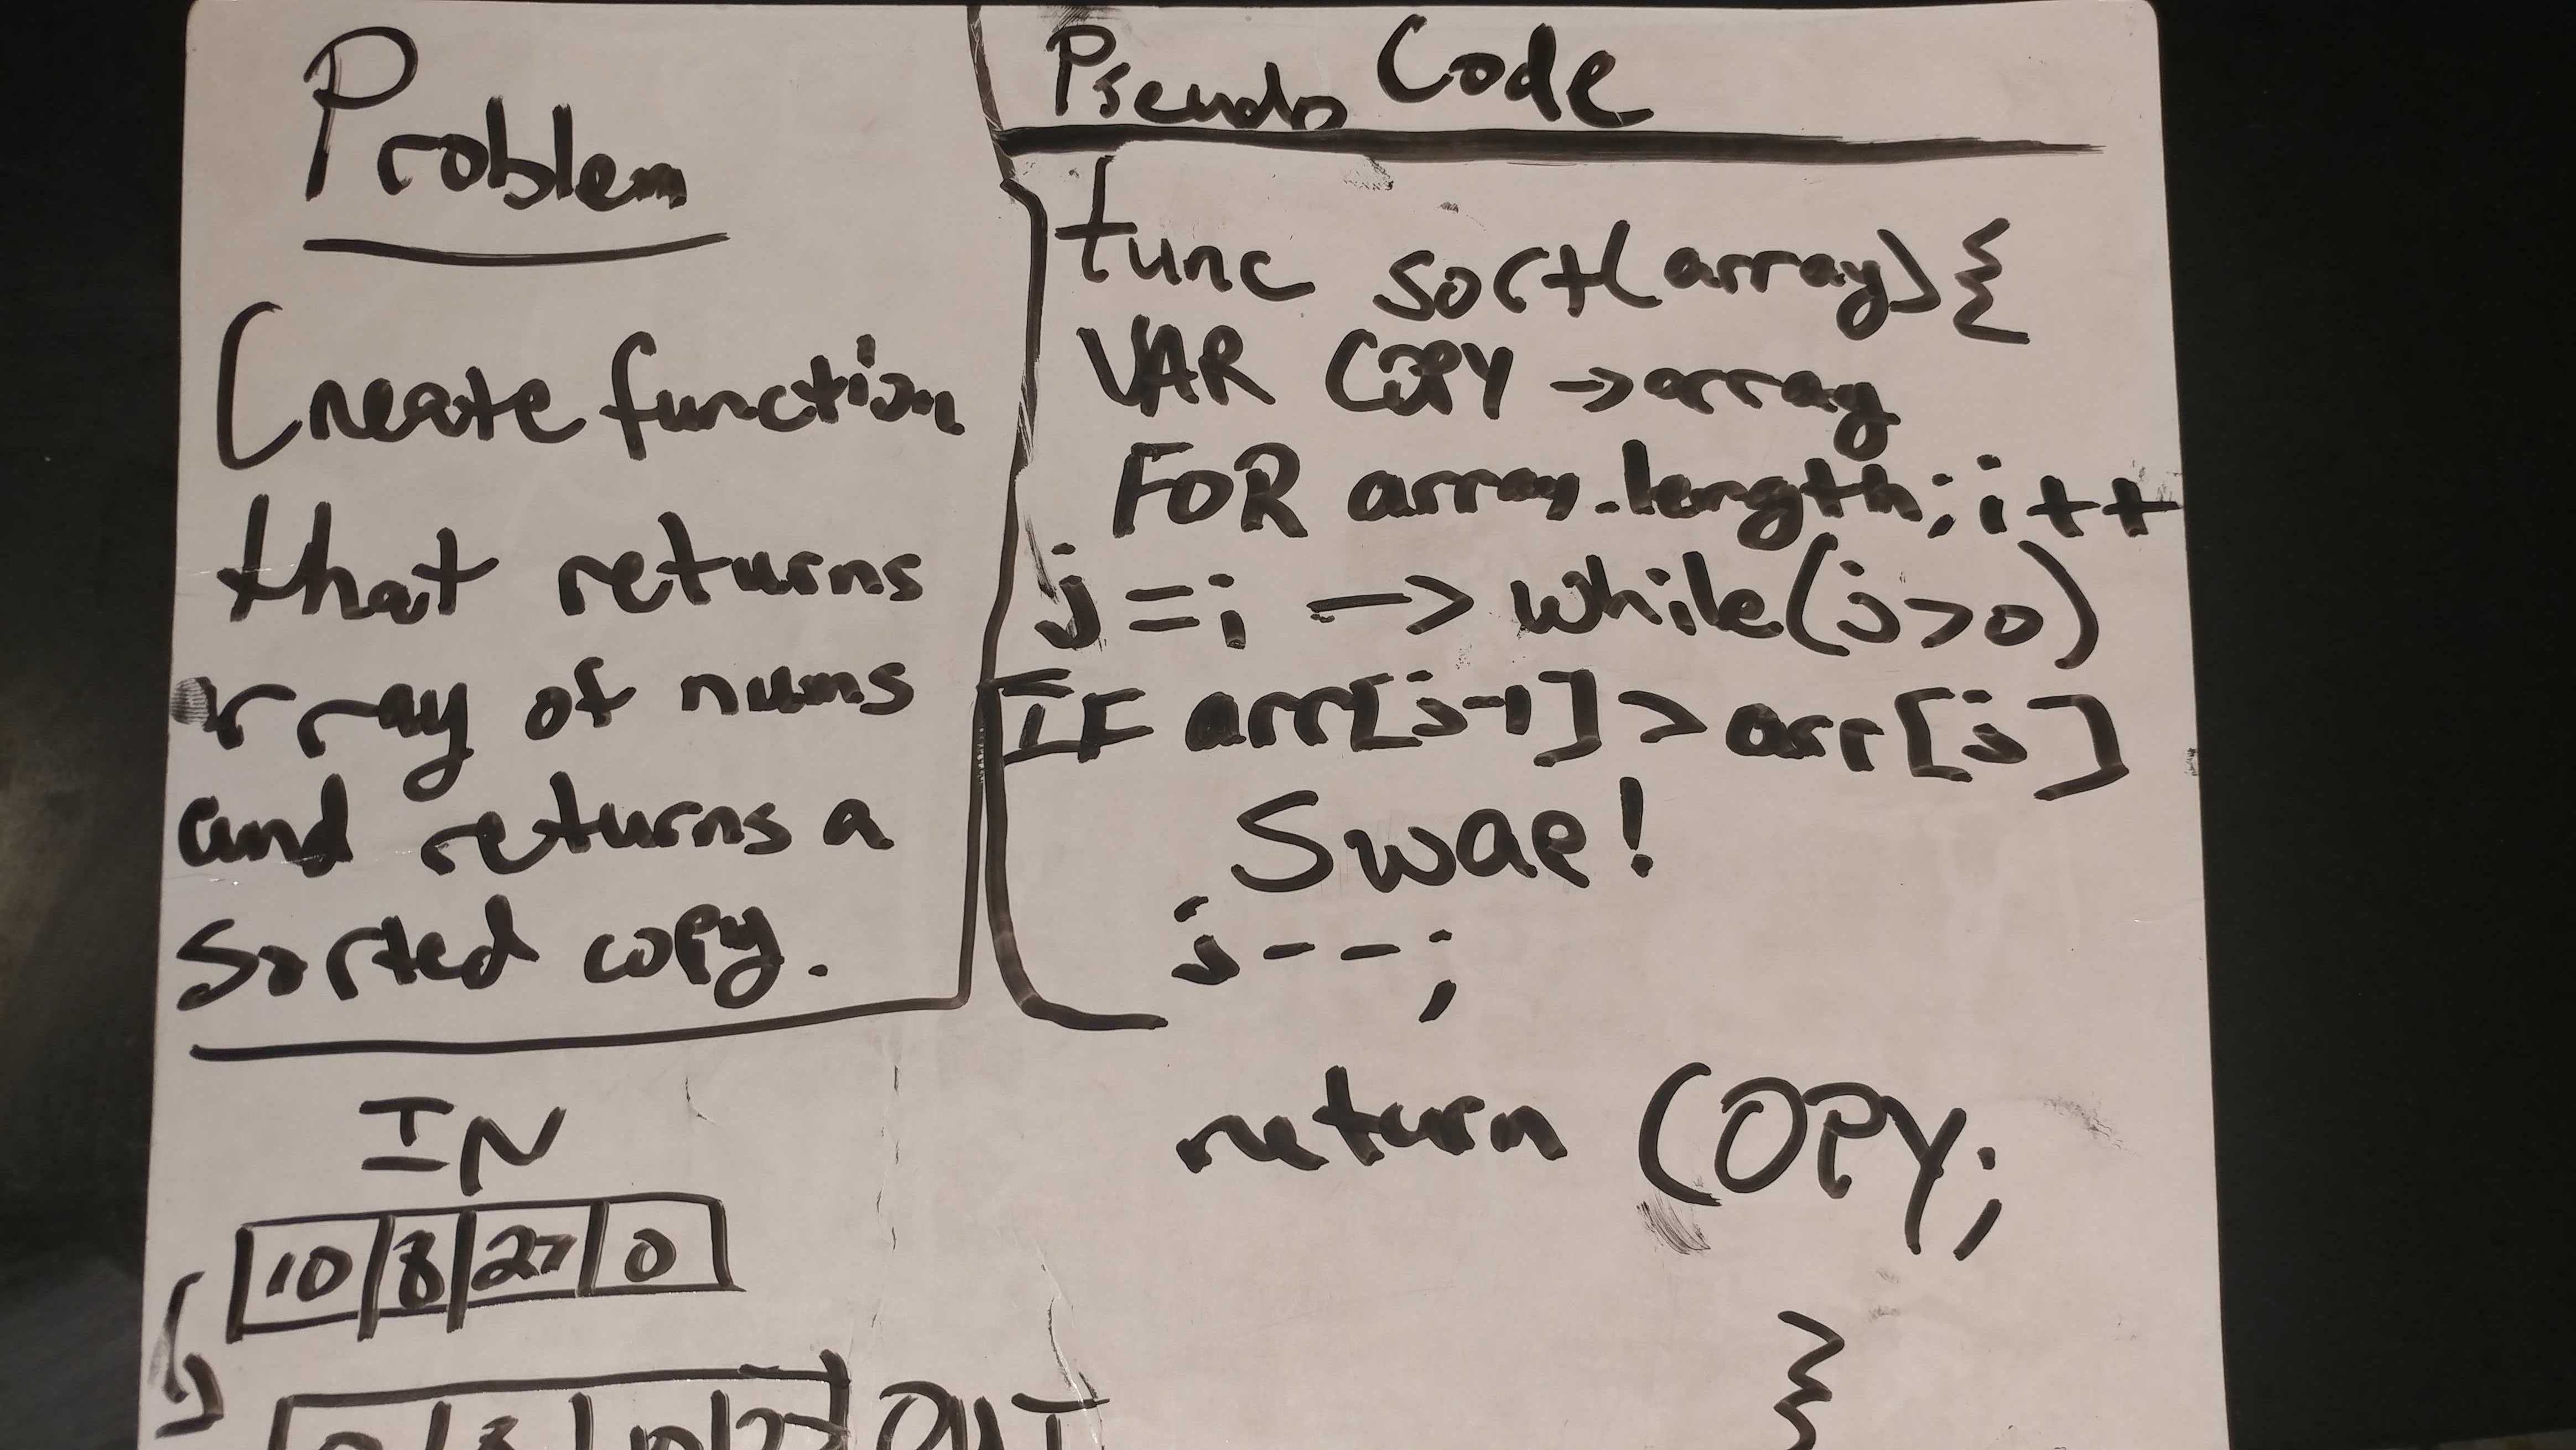 Problem
Create function
that returns
array of nums
and returns a
Sorted copy.
IN
10 8 27 0
0 8 10 27 OUT
Pseudo Code
func sort(array){
VAR COPY → array
FOR array.length; i++
j=i → while(j>0)
IF arr[j-1] > arr[j]
Swap!
j--;
return COPY;
}